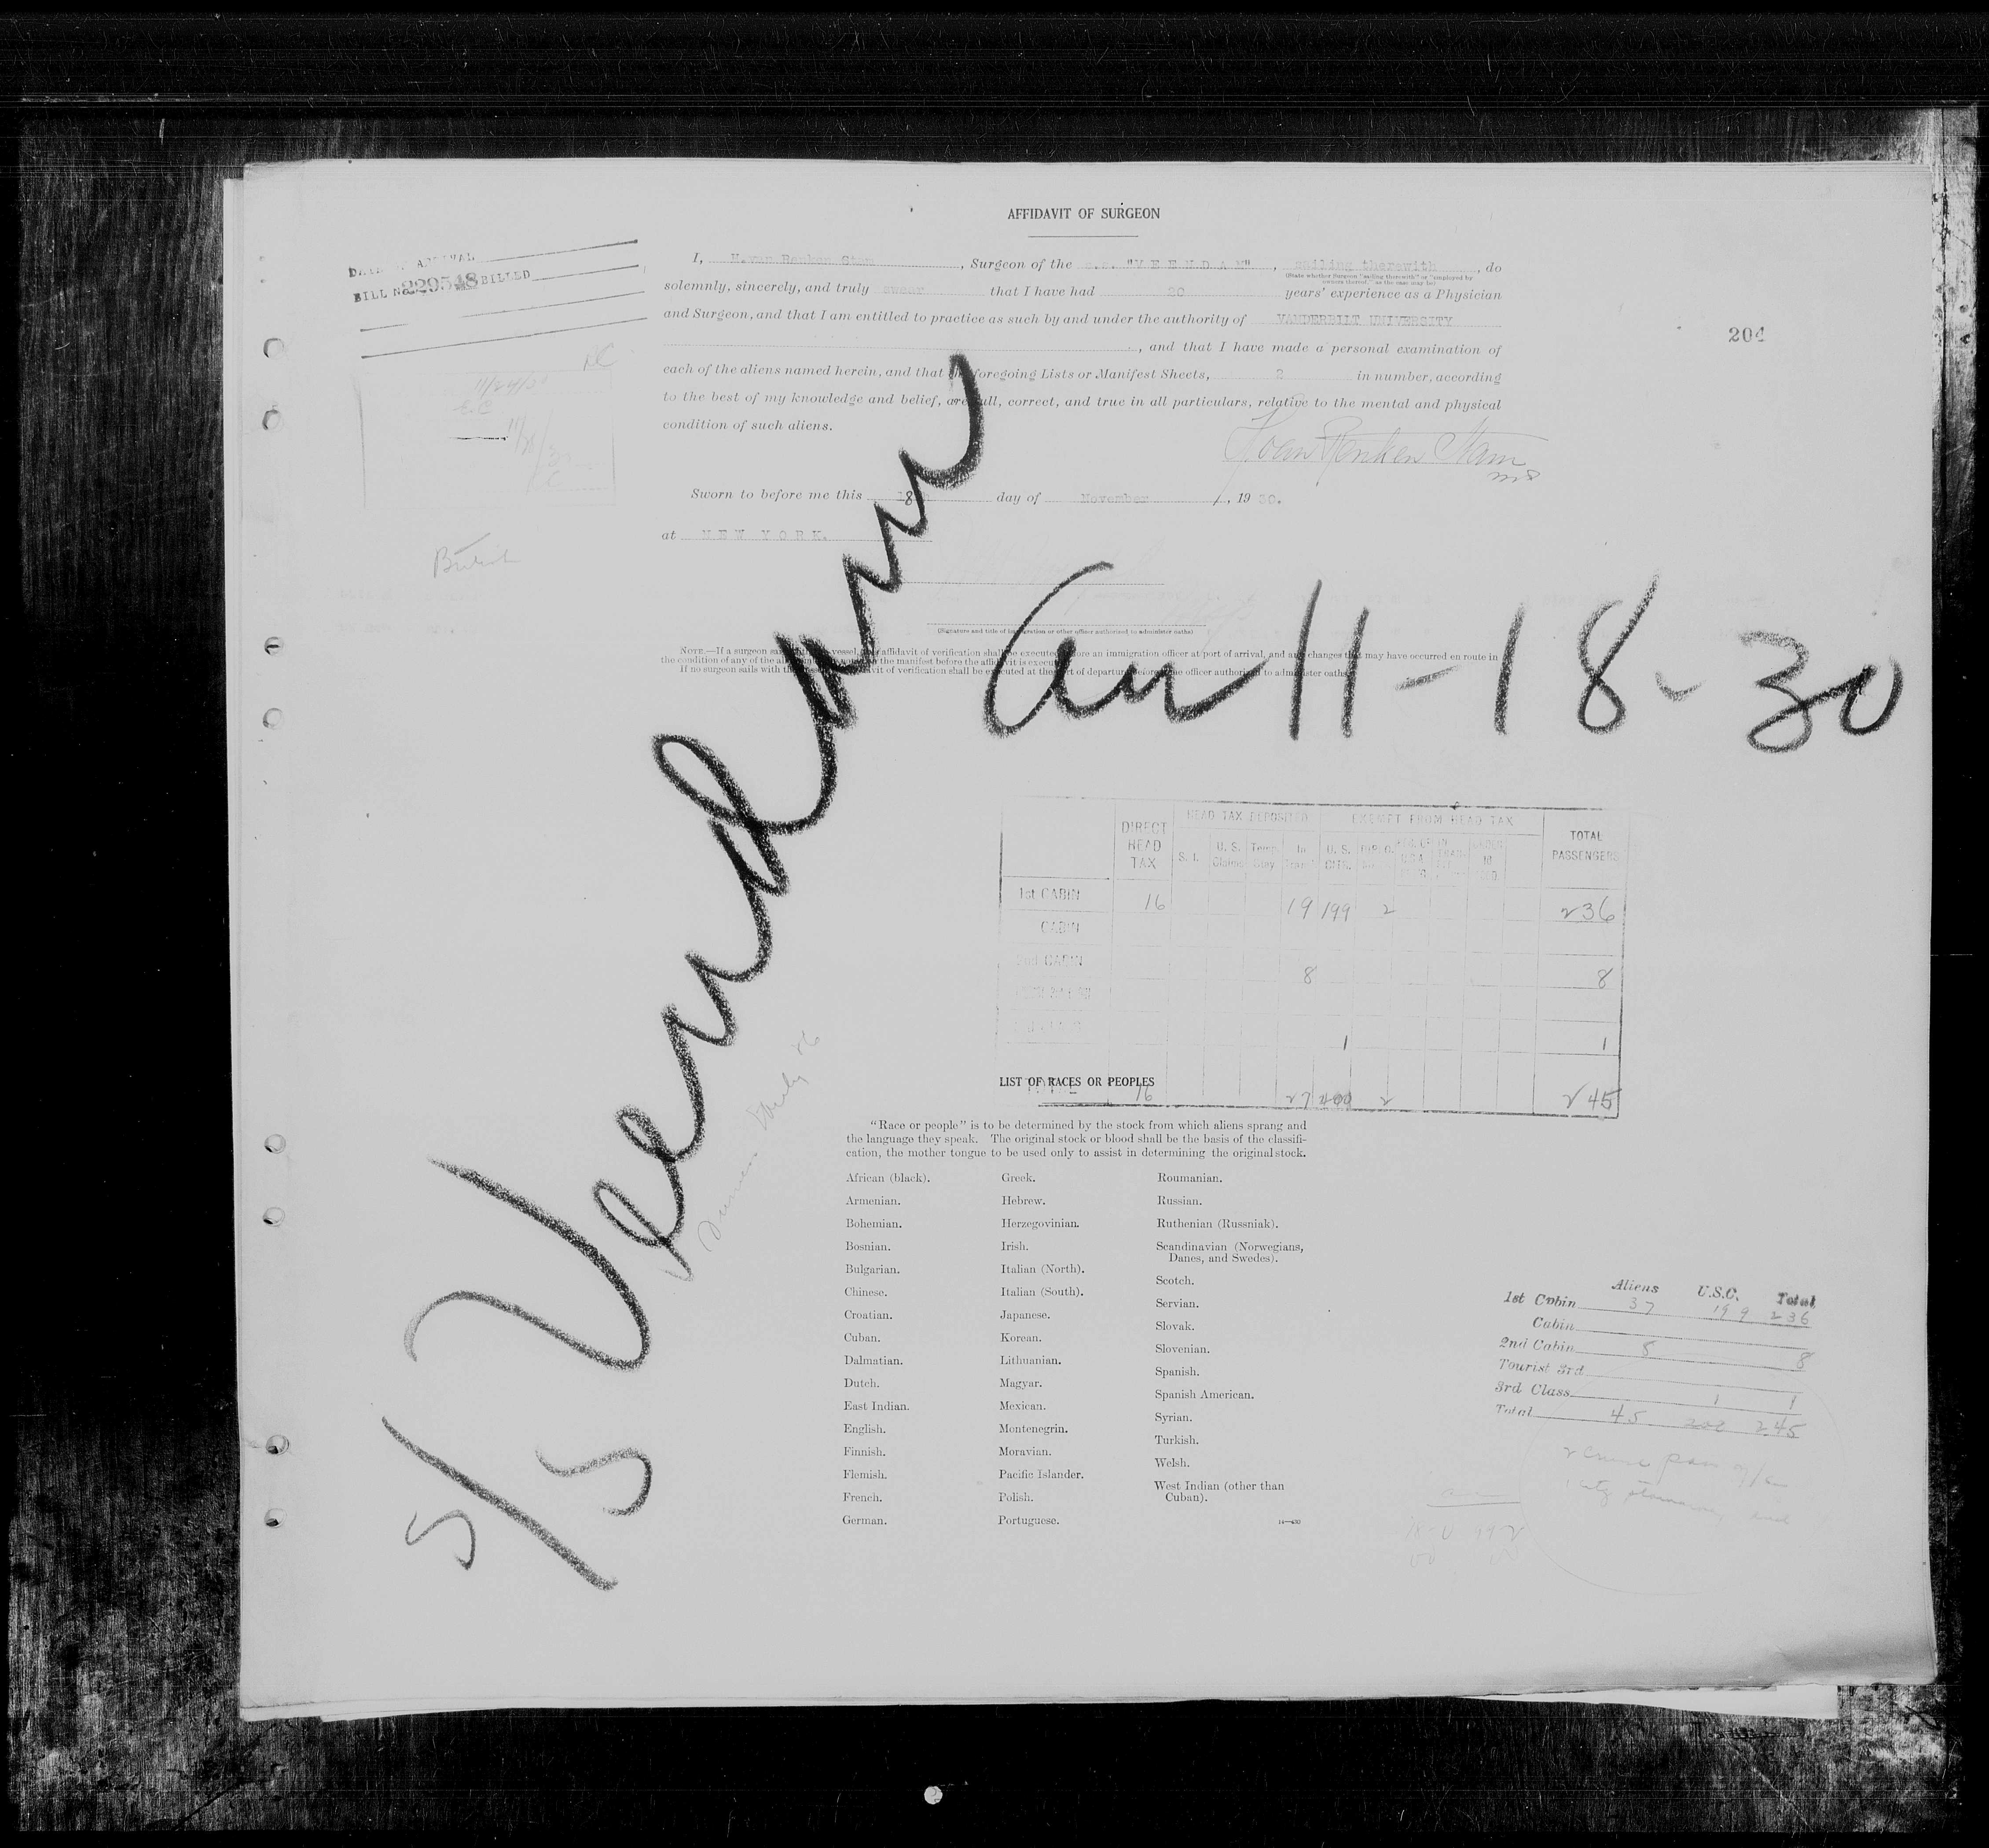 AFFIDAVIT OF SURGEON
DATE OF ARRIVAL
BILL No. 229548 BILLED
I, H.van Renken Stam, Surgeon of the s.s. "V E E N D A M", sailing therewith, do
(State whether Surgeon "sailing therewith" or "employed by
owners thereof," as the case may be)
solemnly, sincerely, and truly swear that I have had 20 years' experience as a Physician
and Surgeon, and that I am entitled to practice as such by and under the authority of VANDERBILT UNIVERSITY
, and that I have made a personal examination of
each of the aliens named herein, and that the foregoing Lists or Manifest Sheets, 2 in number, according
to the best of my knowledge and belief, are full, correct, and true in all particulars, relative to the mental and physical
condition of such aliens.
204
Renken Stam
Sworn to before me this 18 day of November, 1930.
at N E W Y O R K.
British
(Signature and title of immigration or other officer authorized to administer oaths)
NOTE.—If a surgeon sails with the vessel, this affidavit of verification shall be executed before an immigration officer at port of arrival, and any changes that may have occurred en route in
the condition of any of the aliens shall be noted on the manifest before the affidavit is executed.
If no surgeon sails with the vessel, affidavit of verification shall be executed at the port of departure before some officer authorized to administer oaths.
S/S Veendam
Arr 11-18-30
DIRECT HEAD TAX HEAD TAX DEPOSITED EXEMPT FROM HEAD TAX TOTAL PASSENGERS
S. I. U. S. Claims Temp. Stay In Transit U. S. CITS. DIPLO.
1st CABIN 16 19 199 2 236
CABIN
2nd CABIN 8 8
1 1
16 27 200 2 245
LIST OF RACES OR PEOPLES
"Race or people" is to be determined by the stock from which aliens sprang and
the language they speak. The original stock or blood shall be the basis of the classifi-
cation, the mother tongue to be used only to assist in determining the original stock.
African (black).
Armenian.
Bohemian.
Bosnian.
Bulgarian.
Chinese.
Croatian.
Cuban.
Dalmatian.
Dutch.
East Indian.
English.
Finnish.
Flemish.
French.
German.
Greek.
Hebrew.
Herzegovinian.
Irish.
Italian (North).
Italian (South).
Japanese.
Korean.
Lithuanian.
Magyar.
Mexican.
Montenegrin.
Moravian.
Pacific Islander.
Polish.
Portuguese.
Roumanian.
Russian.
Ruthenian (Russniak).
Scandinavian (Norwegians,
Danes, and Swedes).
Scotch.
Servian.
Slovak.
Slovenian.
Spanish.
Spanish American.
Syrian.
Turkish.
Welsh.
West Indian (other than
Cuban).
Aliens U.S.C. Total
1st Cabin 37 199 236
Cabin
2nd Cabin 8 8
Tourist 3rd
3rd Class 1 1
Total 45 200 245